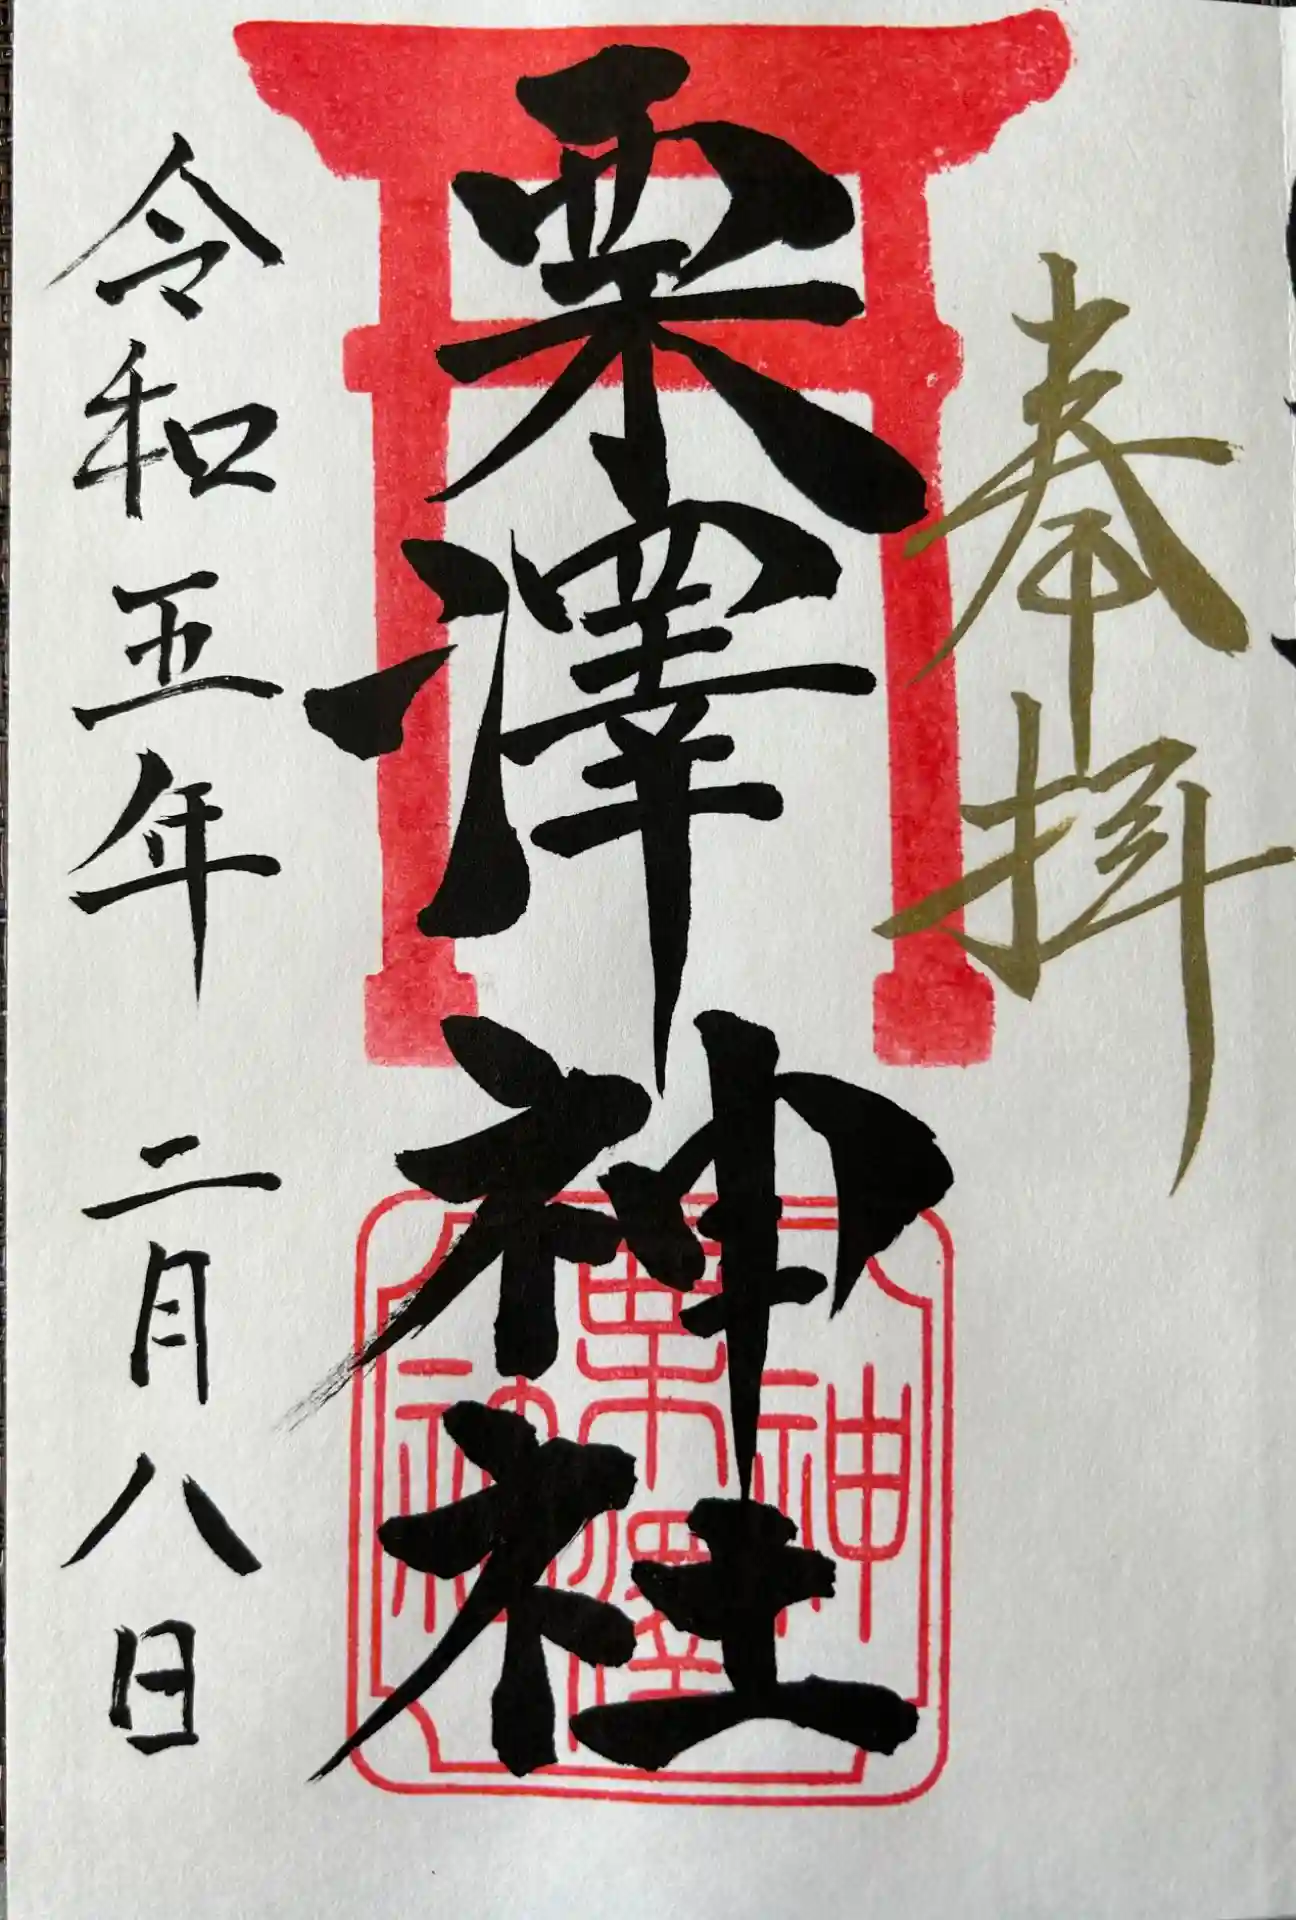 奉拝
栗澤神社
神
栗澤
社
令和五年 二月八日